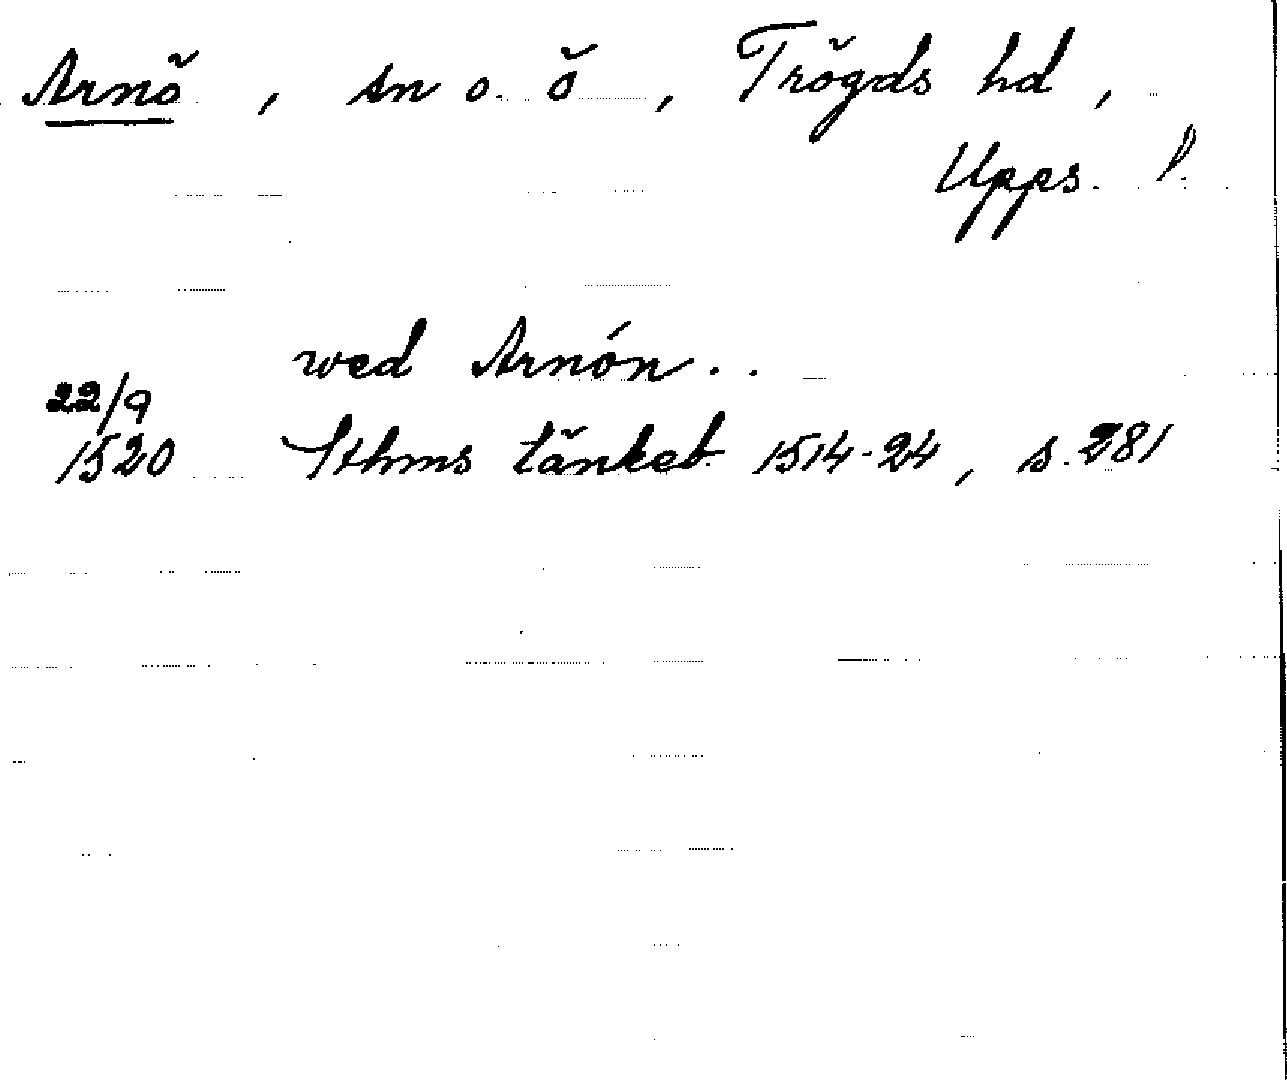 Arnö, sn o. ö, Trögds hd,
Upps. l.
wed Arnón..
22/9
1520 Sthms tänkeb. 1514-24, s. 281